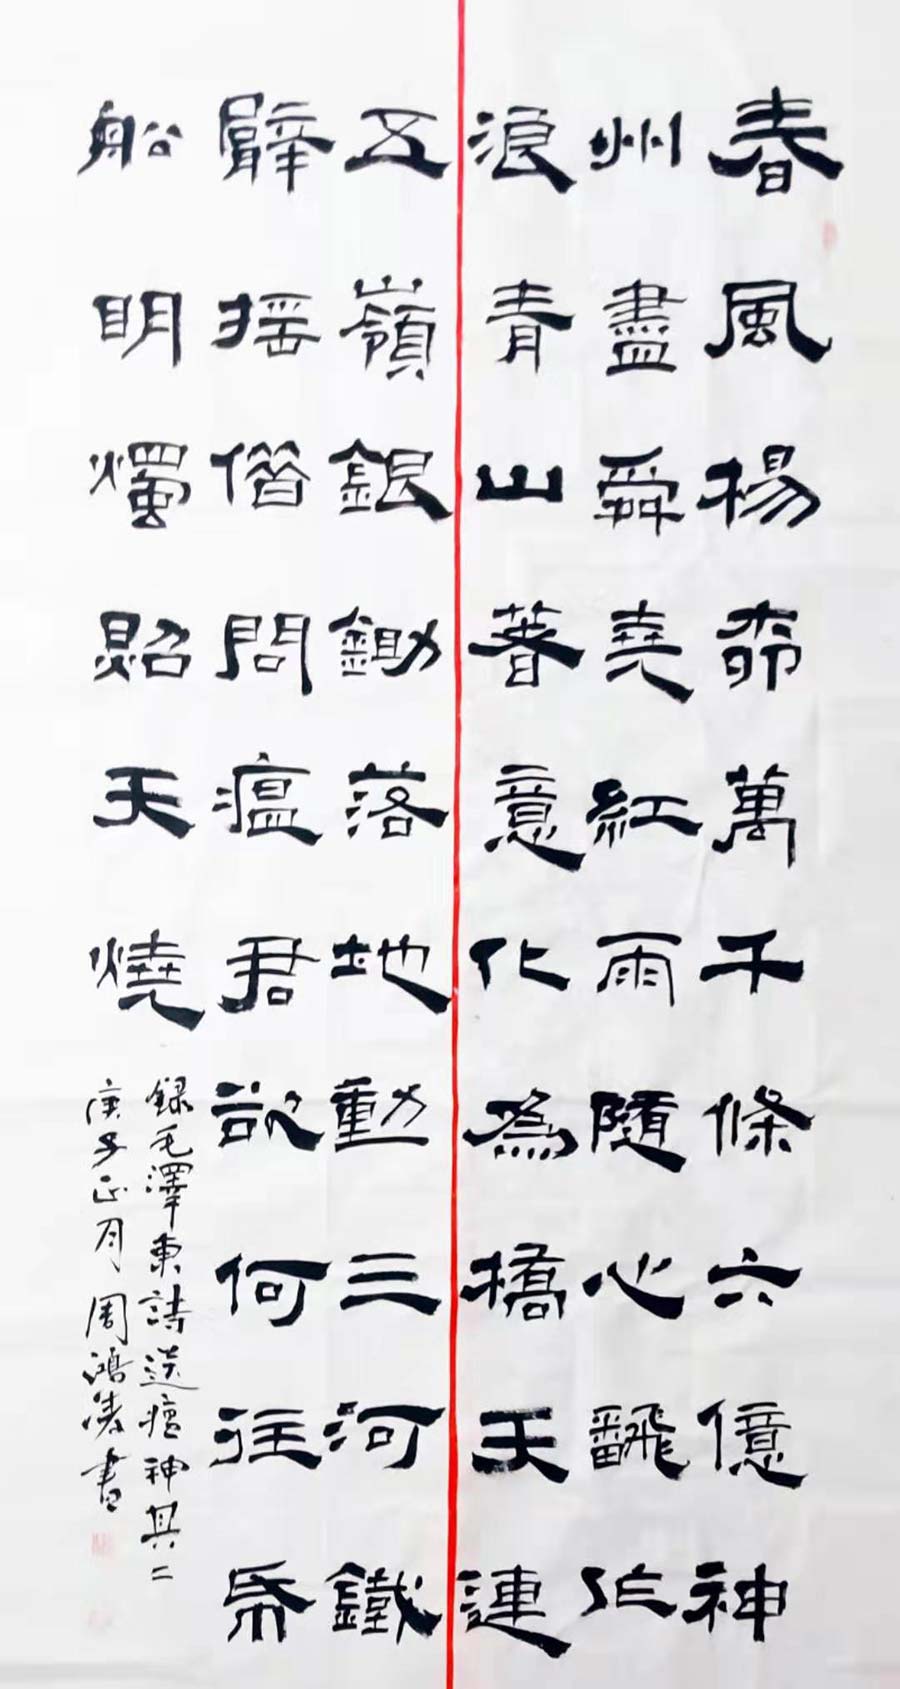 春風楊柳萬千條六億神
州盡舜堯紅雨隨心飜作
浪青山著意化為橋天連
五嶺銀鋤落地動三河鐵
臂摇借問瘟君欲何往帋
船明燭照天燒
録毛澤東詩送瘟神其二
庚子正月周鴻書